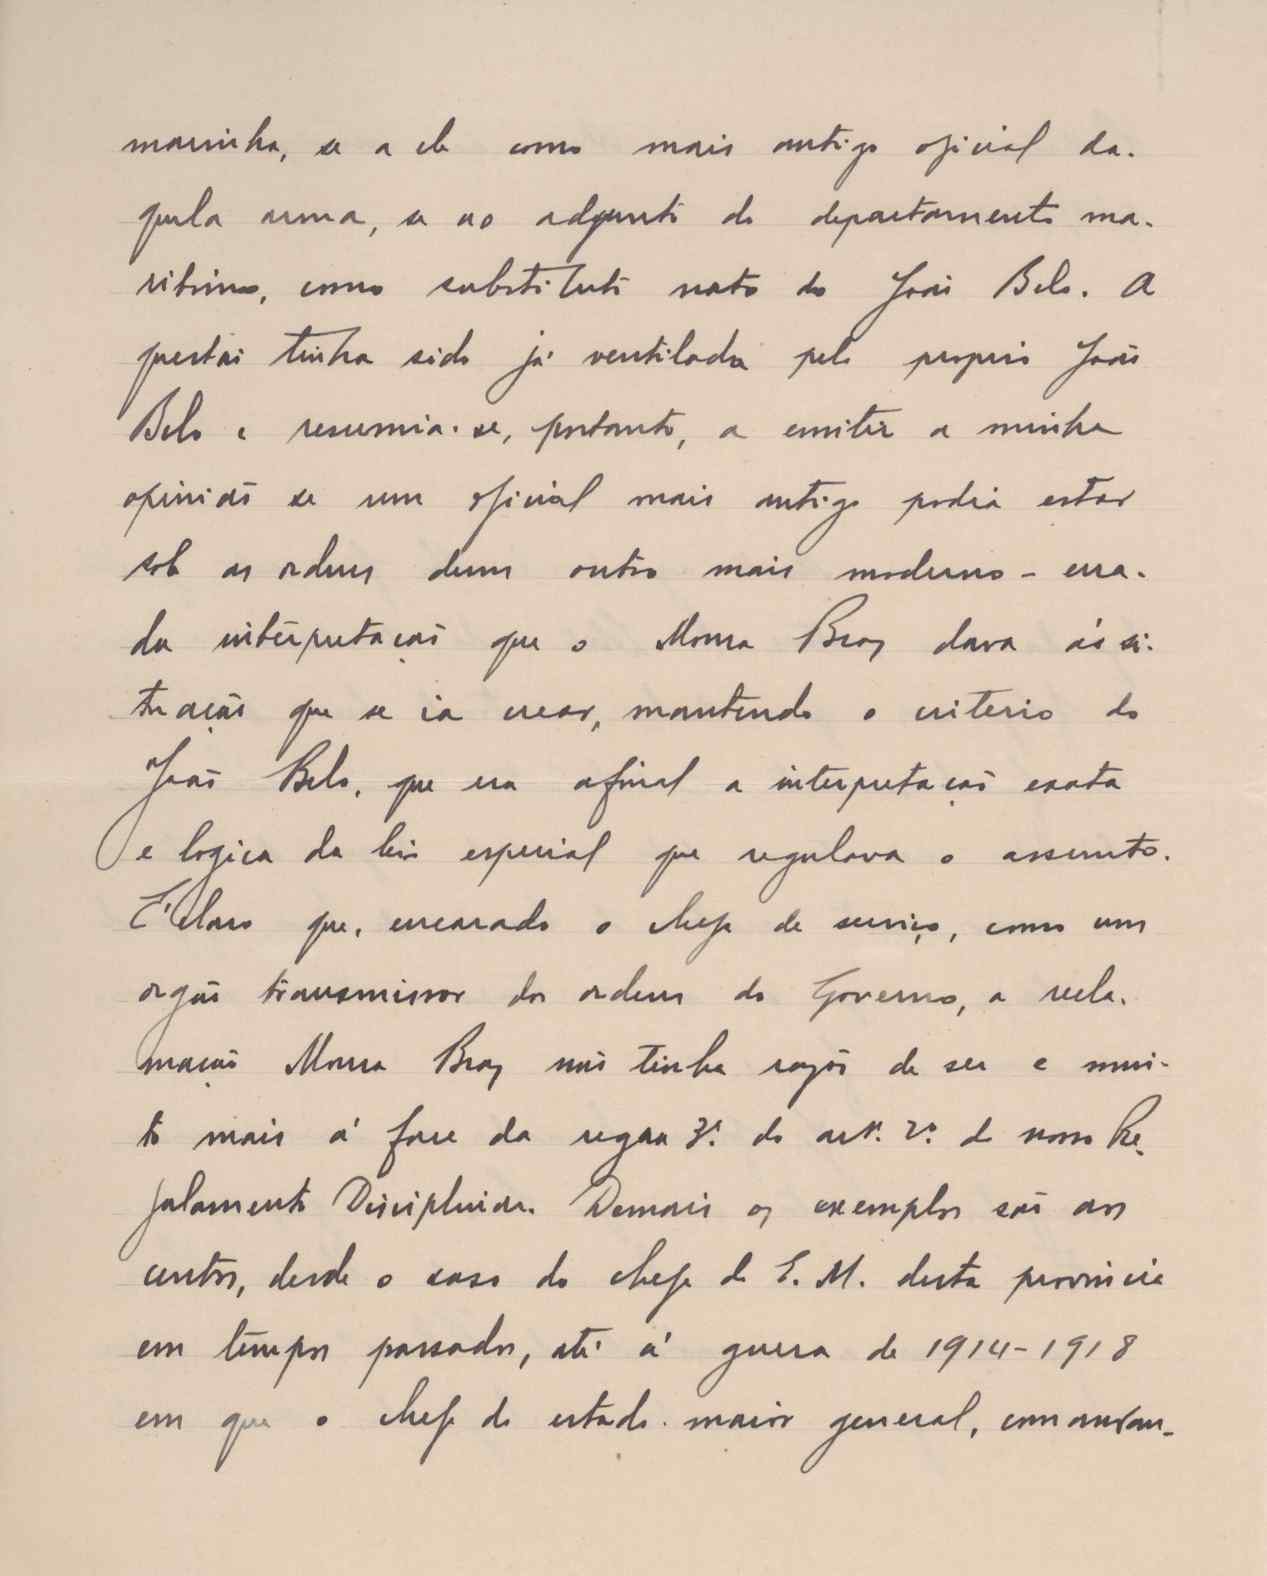 marinha, se a ele como mais antigo oficial da-
quela arma, se ao adjunto do departamento ma-
ritimo, como substituto nato do João Belo. A
questão tinha sido já ventilada pelo proprio João
Belo e resumia-se, portanto, a emitir a minha
opinião se um oficial mais antigo podia estar
sob as ordens dum outro mais moderno - erra-
da interpretação que o Moura Braz dava á si-
tuação que se ia crear, mantendo o criterio do
João Belo, que era afinal a interpretação exata
e logica da lei especial que regulava o assunto.
É claro que, encarado o chefe de serviço, como um
orgão transmissor das ordens do Governo, a recla-
mação Moura Braz não tinha razão de ser e mui-
to mais á face da regra 3ª. do artº. 2º. do nosso Re-
gulamento Disciplinar. Demais os exemplos são aos
centos, desde o caso do chefe do E. M. desta provincia
em tempos passados, até á guerra de 1914-1918
em que o chefe do estado-maior general, comandan-